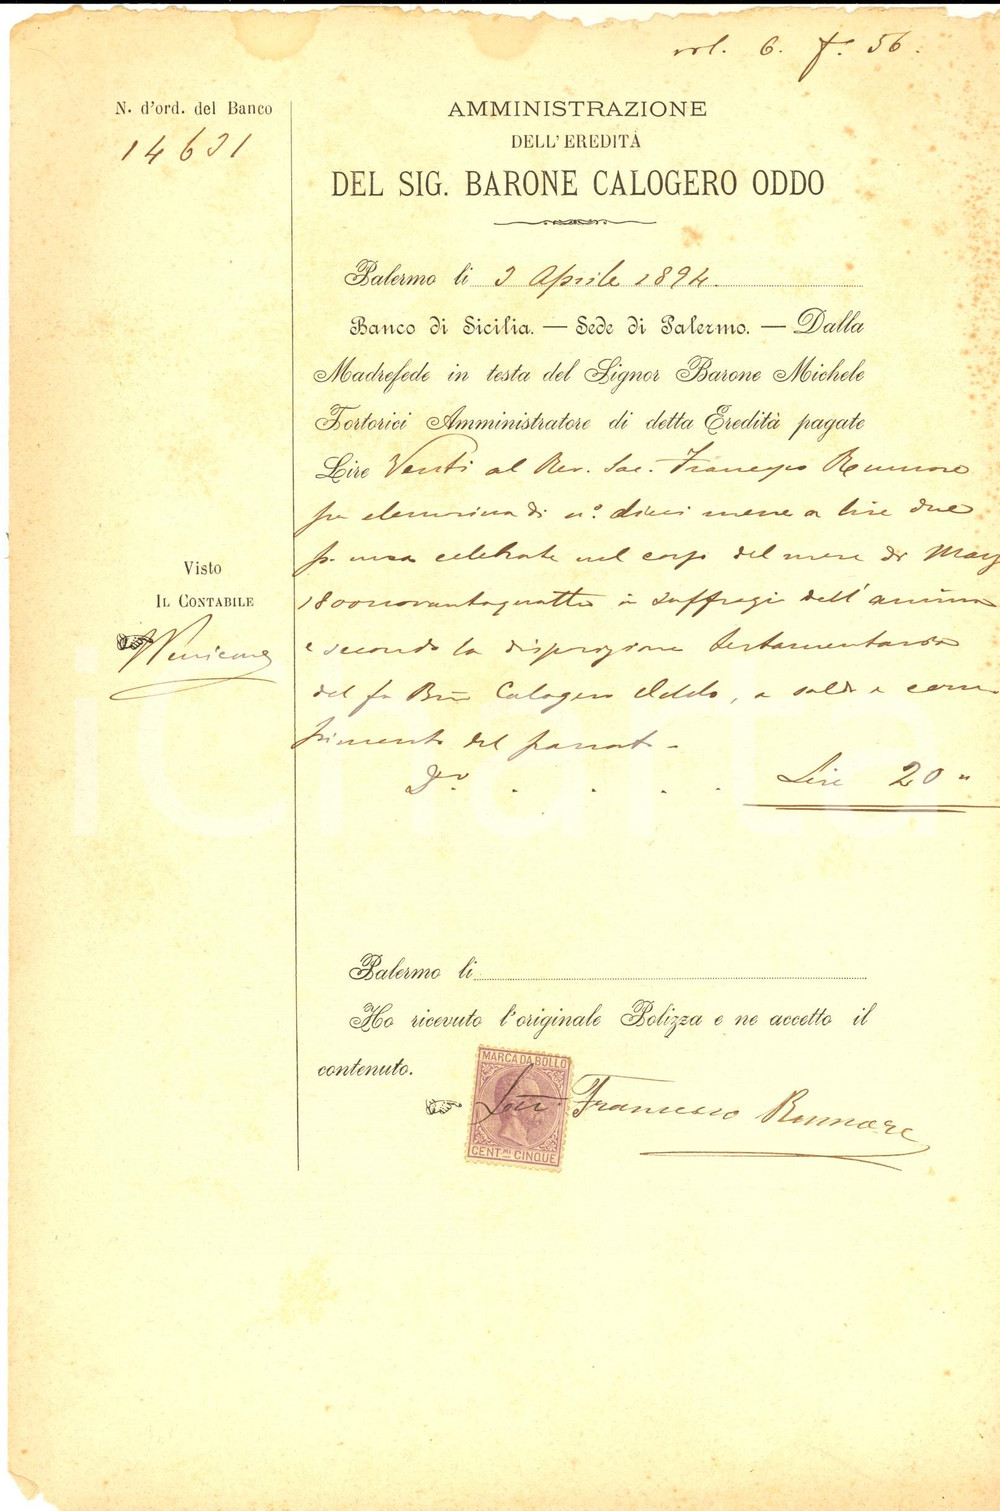 vol. 6. f. 56.
N. d'ord. del Banco
14631
AMMINISTRAZIONE
DELL'EREDITÀ
DEL SIG. BARONE CALOGERO ODDO
Palermo li 3 Aprile 1894.
Banco di Sicilia. — Sede di Palermo. — Dalla
Madrefede in testa del Signor Barone Michele
Tortorici Amministratore di detta Eredità pagate
Lire Venti al Rev. Sac. Francesco
per elemosina di n.° dieci messe a lire due
p. messa celebrate nel corso del mese di
1800novantaquattro in suffragio dell'anima
e secondo la disposizione testamentaria
del fu Bne Calogero Oddo, a saldo e com
pimento del passato -
Dr. . . . . Lire 20 "
Visto
IL CONTABILE
Palermo li
Ho ricevuto l'originale Polizza e ne accetto il
contenuto.
MARCA DA BOLLO
CENT.MI CINQUE
Francesco